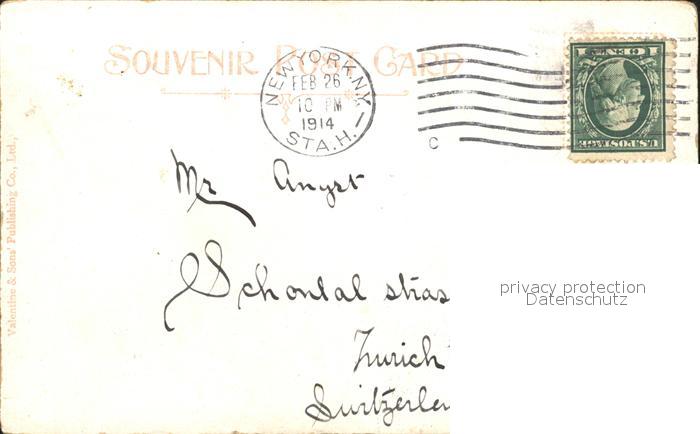 SOUVENIR POST CARD
NEW YORK, N.Y.
FEB 26
10 PM
1914
STA.H.
C
1 CENT 1
U.S. POSTAGE
Mr Angst
Schontal stras
Zurich
Switzerlan
privacy protection
Datenschutz
Valentine & Sons' Publishing Co., Ltd.,